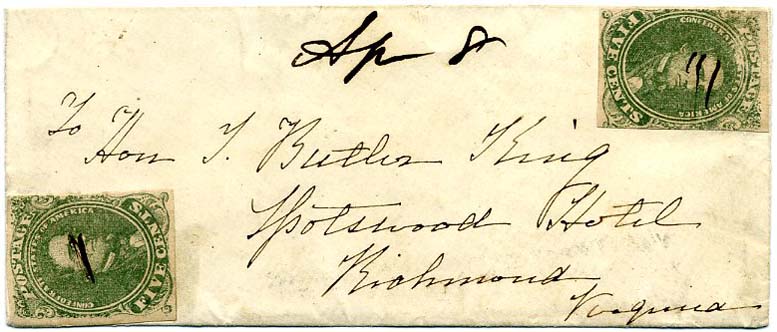 Ap 8
POSTAGE
CONFEDERATE STATES OF AMERICA
FIVE CENTS
To
Hon T. Butler King
Spotswood Hotel
Richmond
Virginia
POSTAGE
CONFEDERATE STATES OF AMERICA
FIVE CENTS